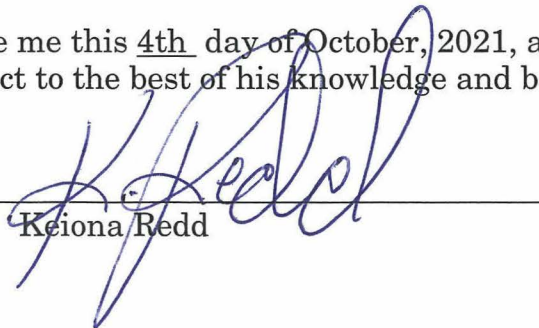 e me this 4th day of October, 2021, a
ct to the best of his knowledge and b
K. Redd
Keiona Redd